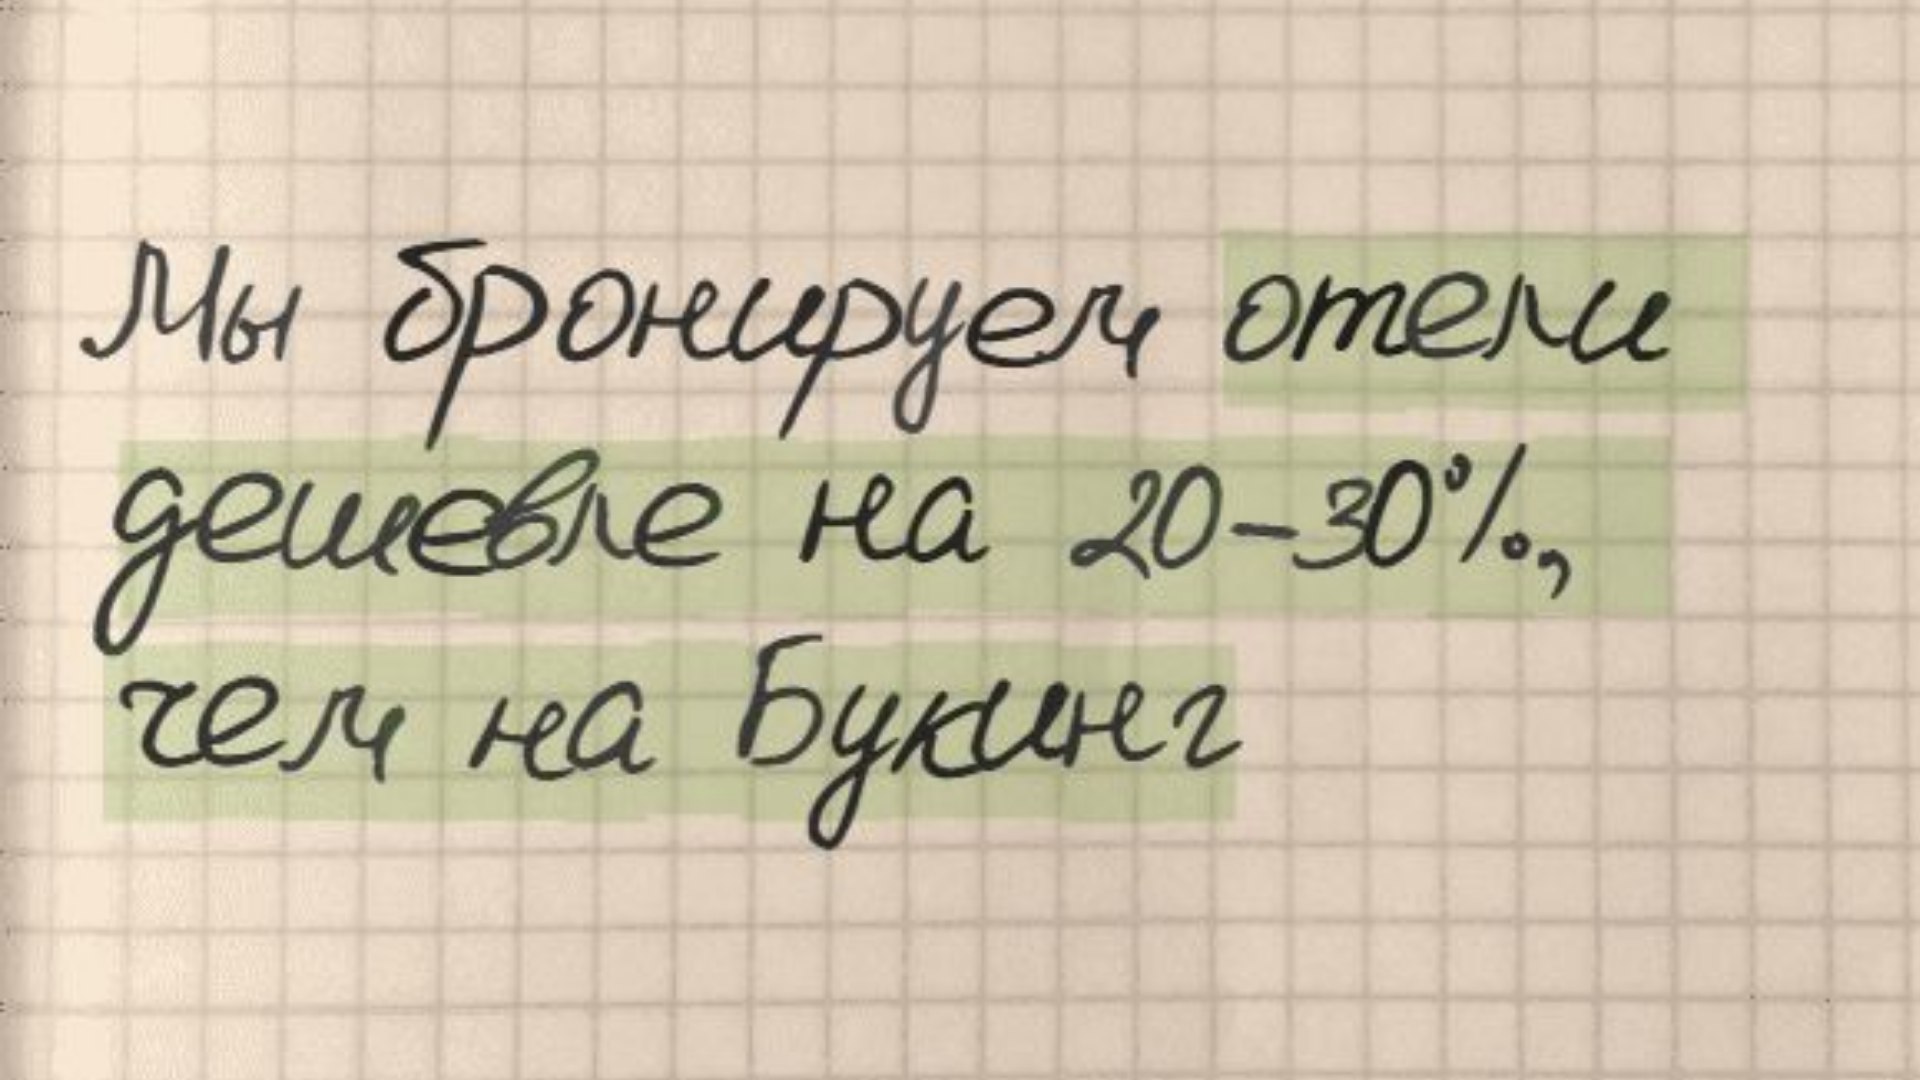 Мы бронируем отели
дешевле на 20-30%,
чем на Букинг